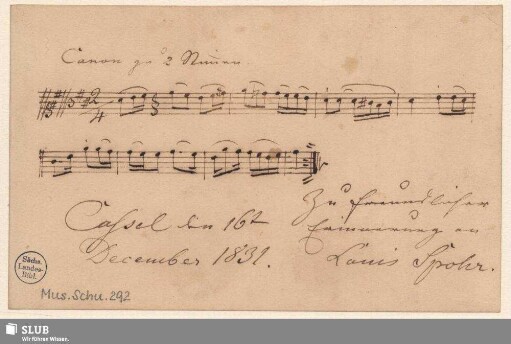 Canon zu 2 Stimmen
2
4
Cassel den 16t
December 1831.
Zu freundlicher
Erinnerung an
Louis Spohr.
Sächs.
Landes-
Bibl.
Mus.Schu.292
SLUB
Wir führen Wissen.